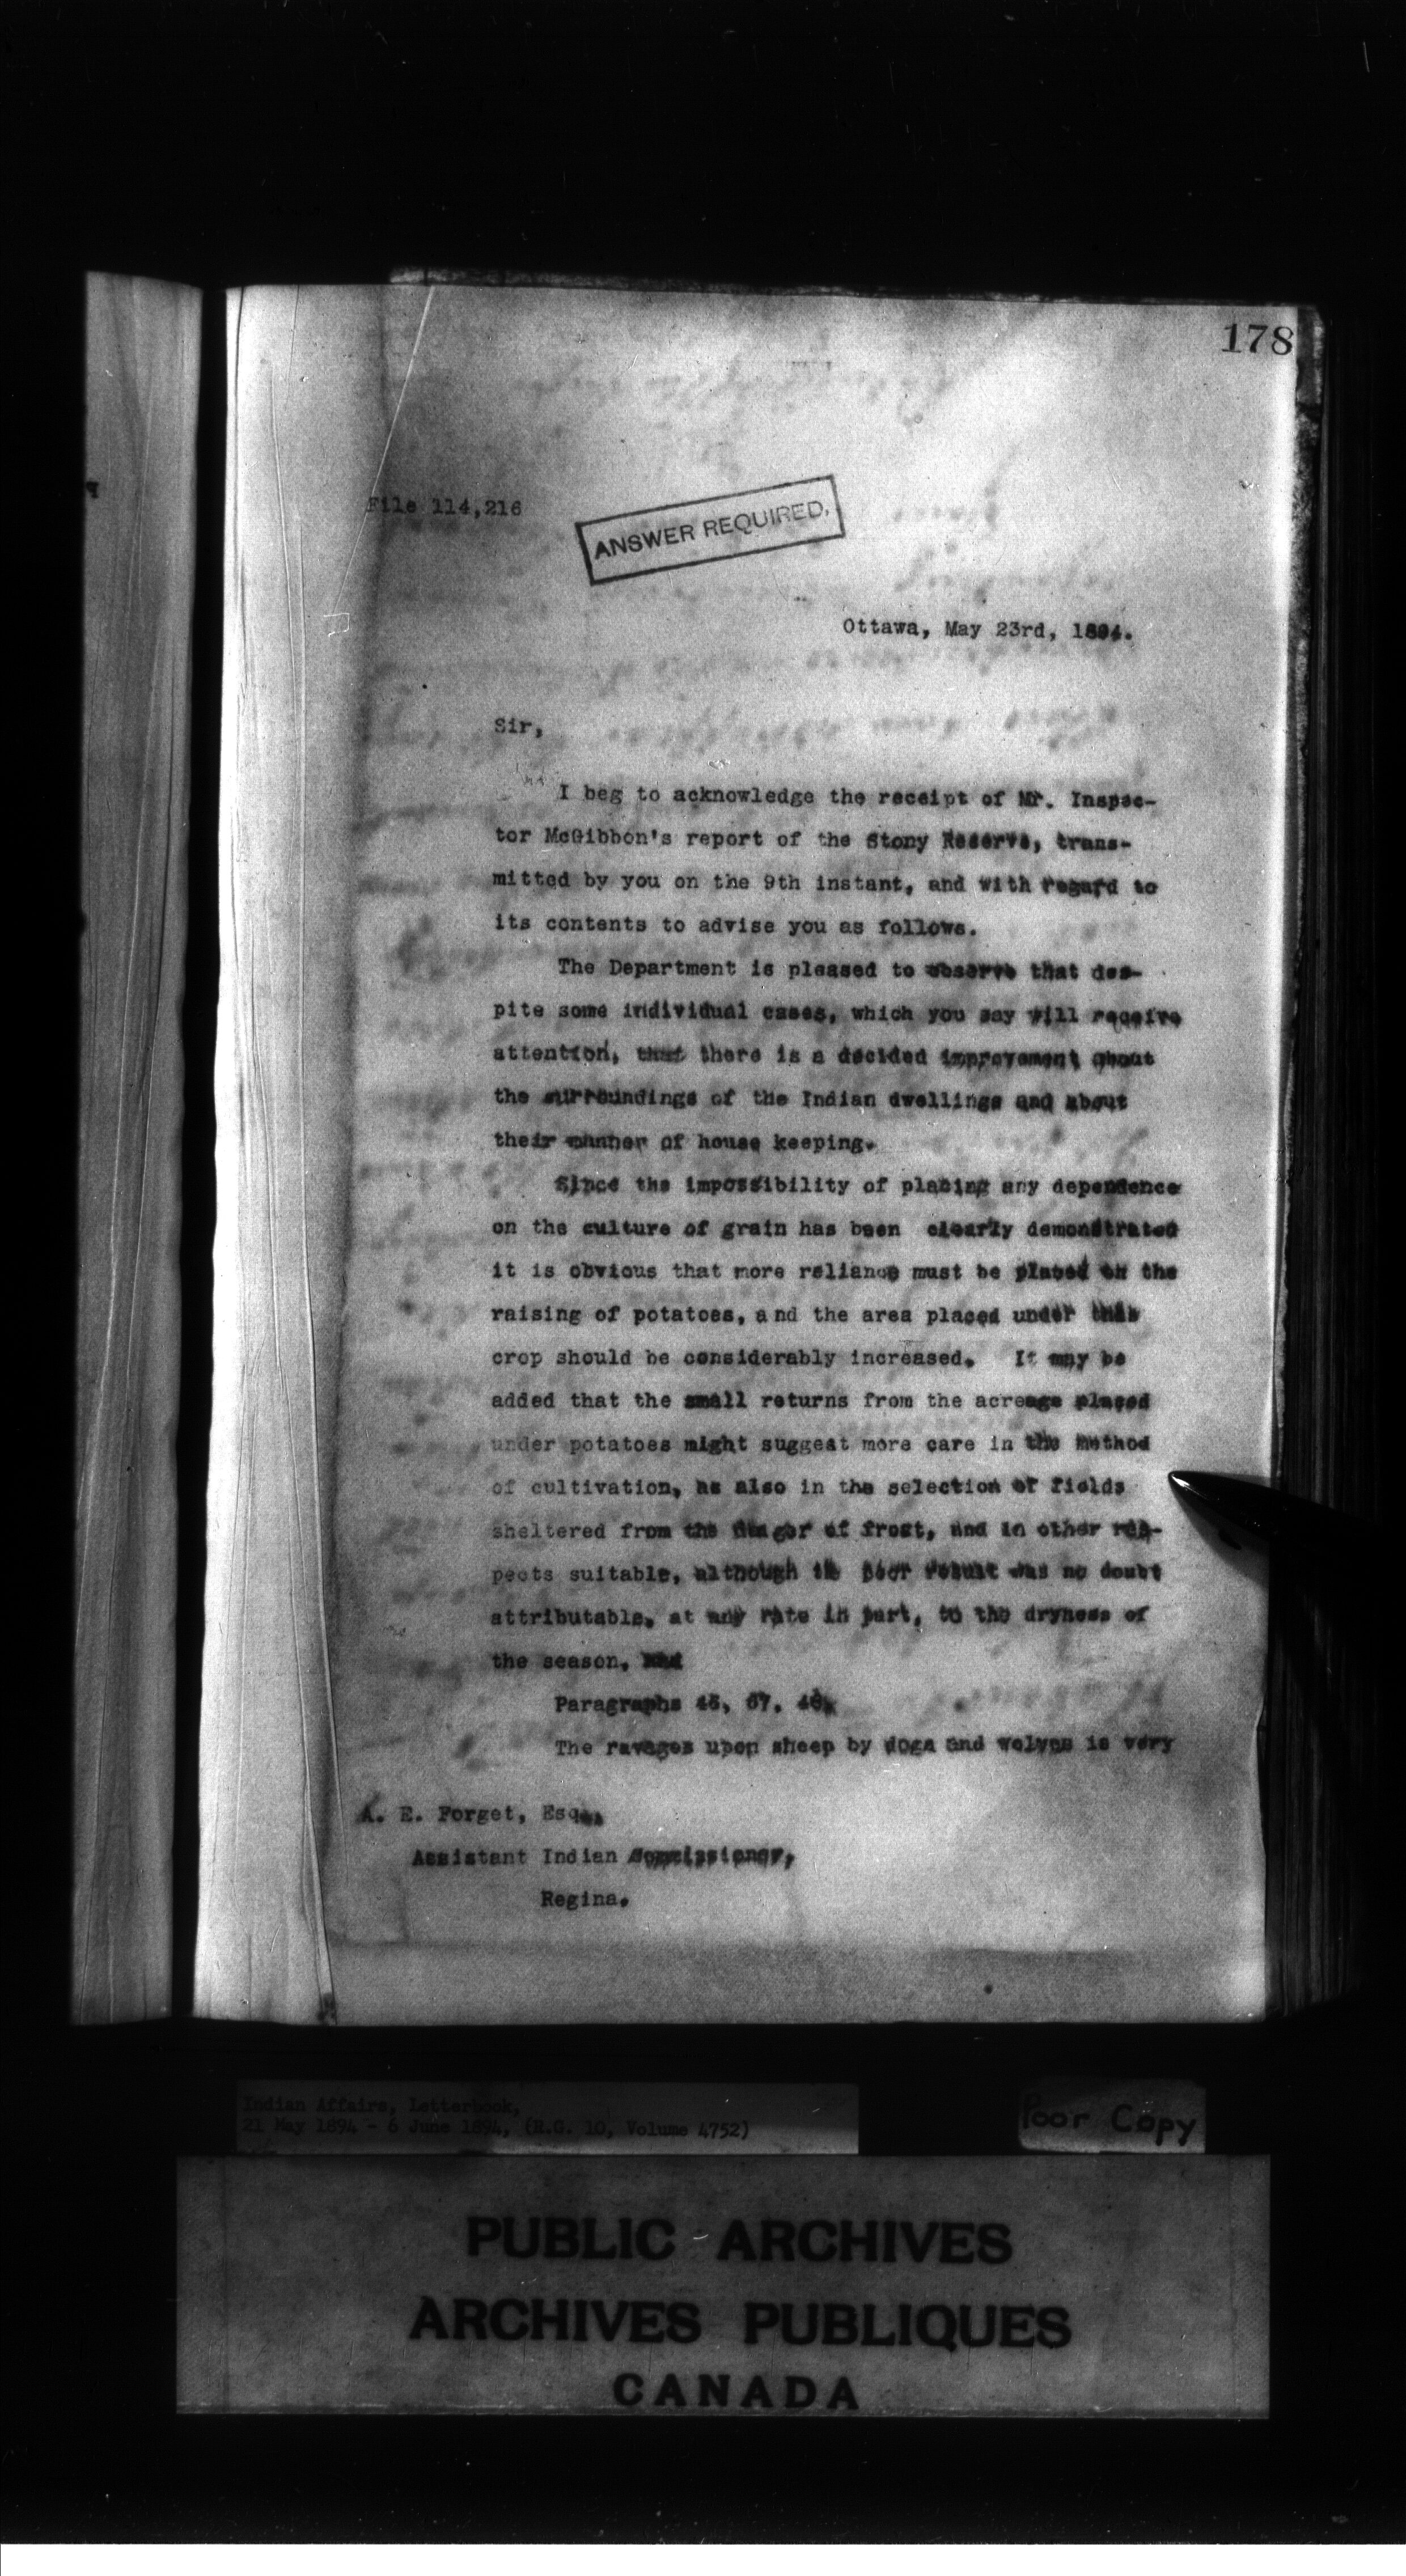 178
File 114,216
ANSWER REQUIRED.
Ottawa, May 23rd, 1894.
Sir,
I beg to acknowledge the receipt of Mr. Inspec-
tor McGibbon's report of the Stony Reserve, trans-
mitted by you on the 9th instant, and with regard to
its contents to advise you as follows.
The Department is pleased to observe that des-
pite some individual cases, which you say will receive
attention, that there is a decided improvement about
the surroundings of the Indian dwellings and about
their manner of house keeping.
Since the impossibility of placing any dependence
on the culture of grain has been clearly demonstrated
it is obvious that more reliance must be placed on the
raising of potatoes, and the area placed under this
crop should be considerably increased. It may be
added that the small returns from the acreage placed
under potatoes might suggest more care in the method
of cultivation, as also in the selection of fields
sheltered from the danger of frost, and in other res-
pects suitable, although the poor result was no doubt
attributable, at any rate in part, to the dryness of
the season,
Paragraphs
The ravages upon sheep by dogs and wolves is very
A. E. Forget, Esq.,
Assistant Indian Commissioner,
Regina.
Indian Affairs, Letterbook,
21 May 1894 - 6 June 1894, (R.G. 10, Volume 4752)
Poor Copy
PUBLIC ARCHIVES
ARCHIVES PUBLIQUES
CANADA